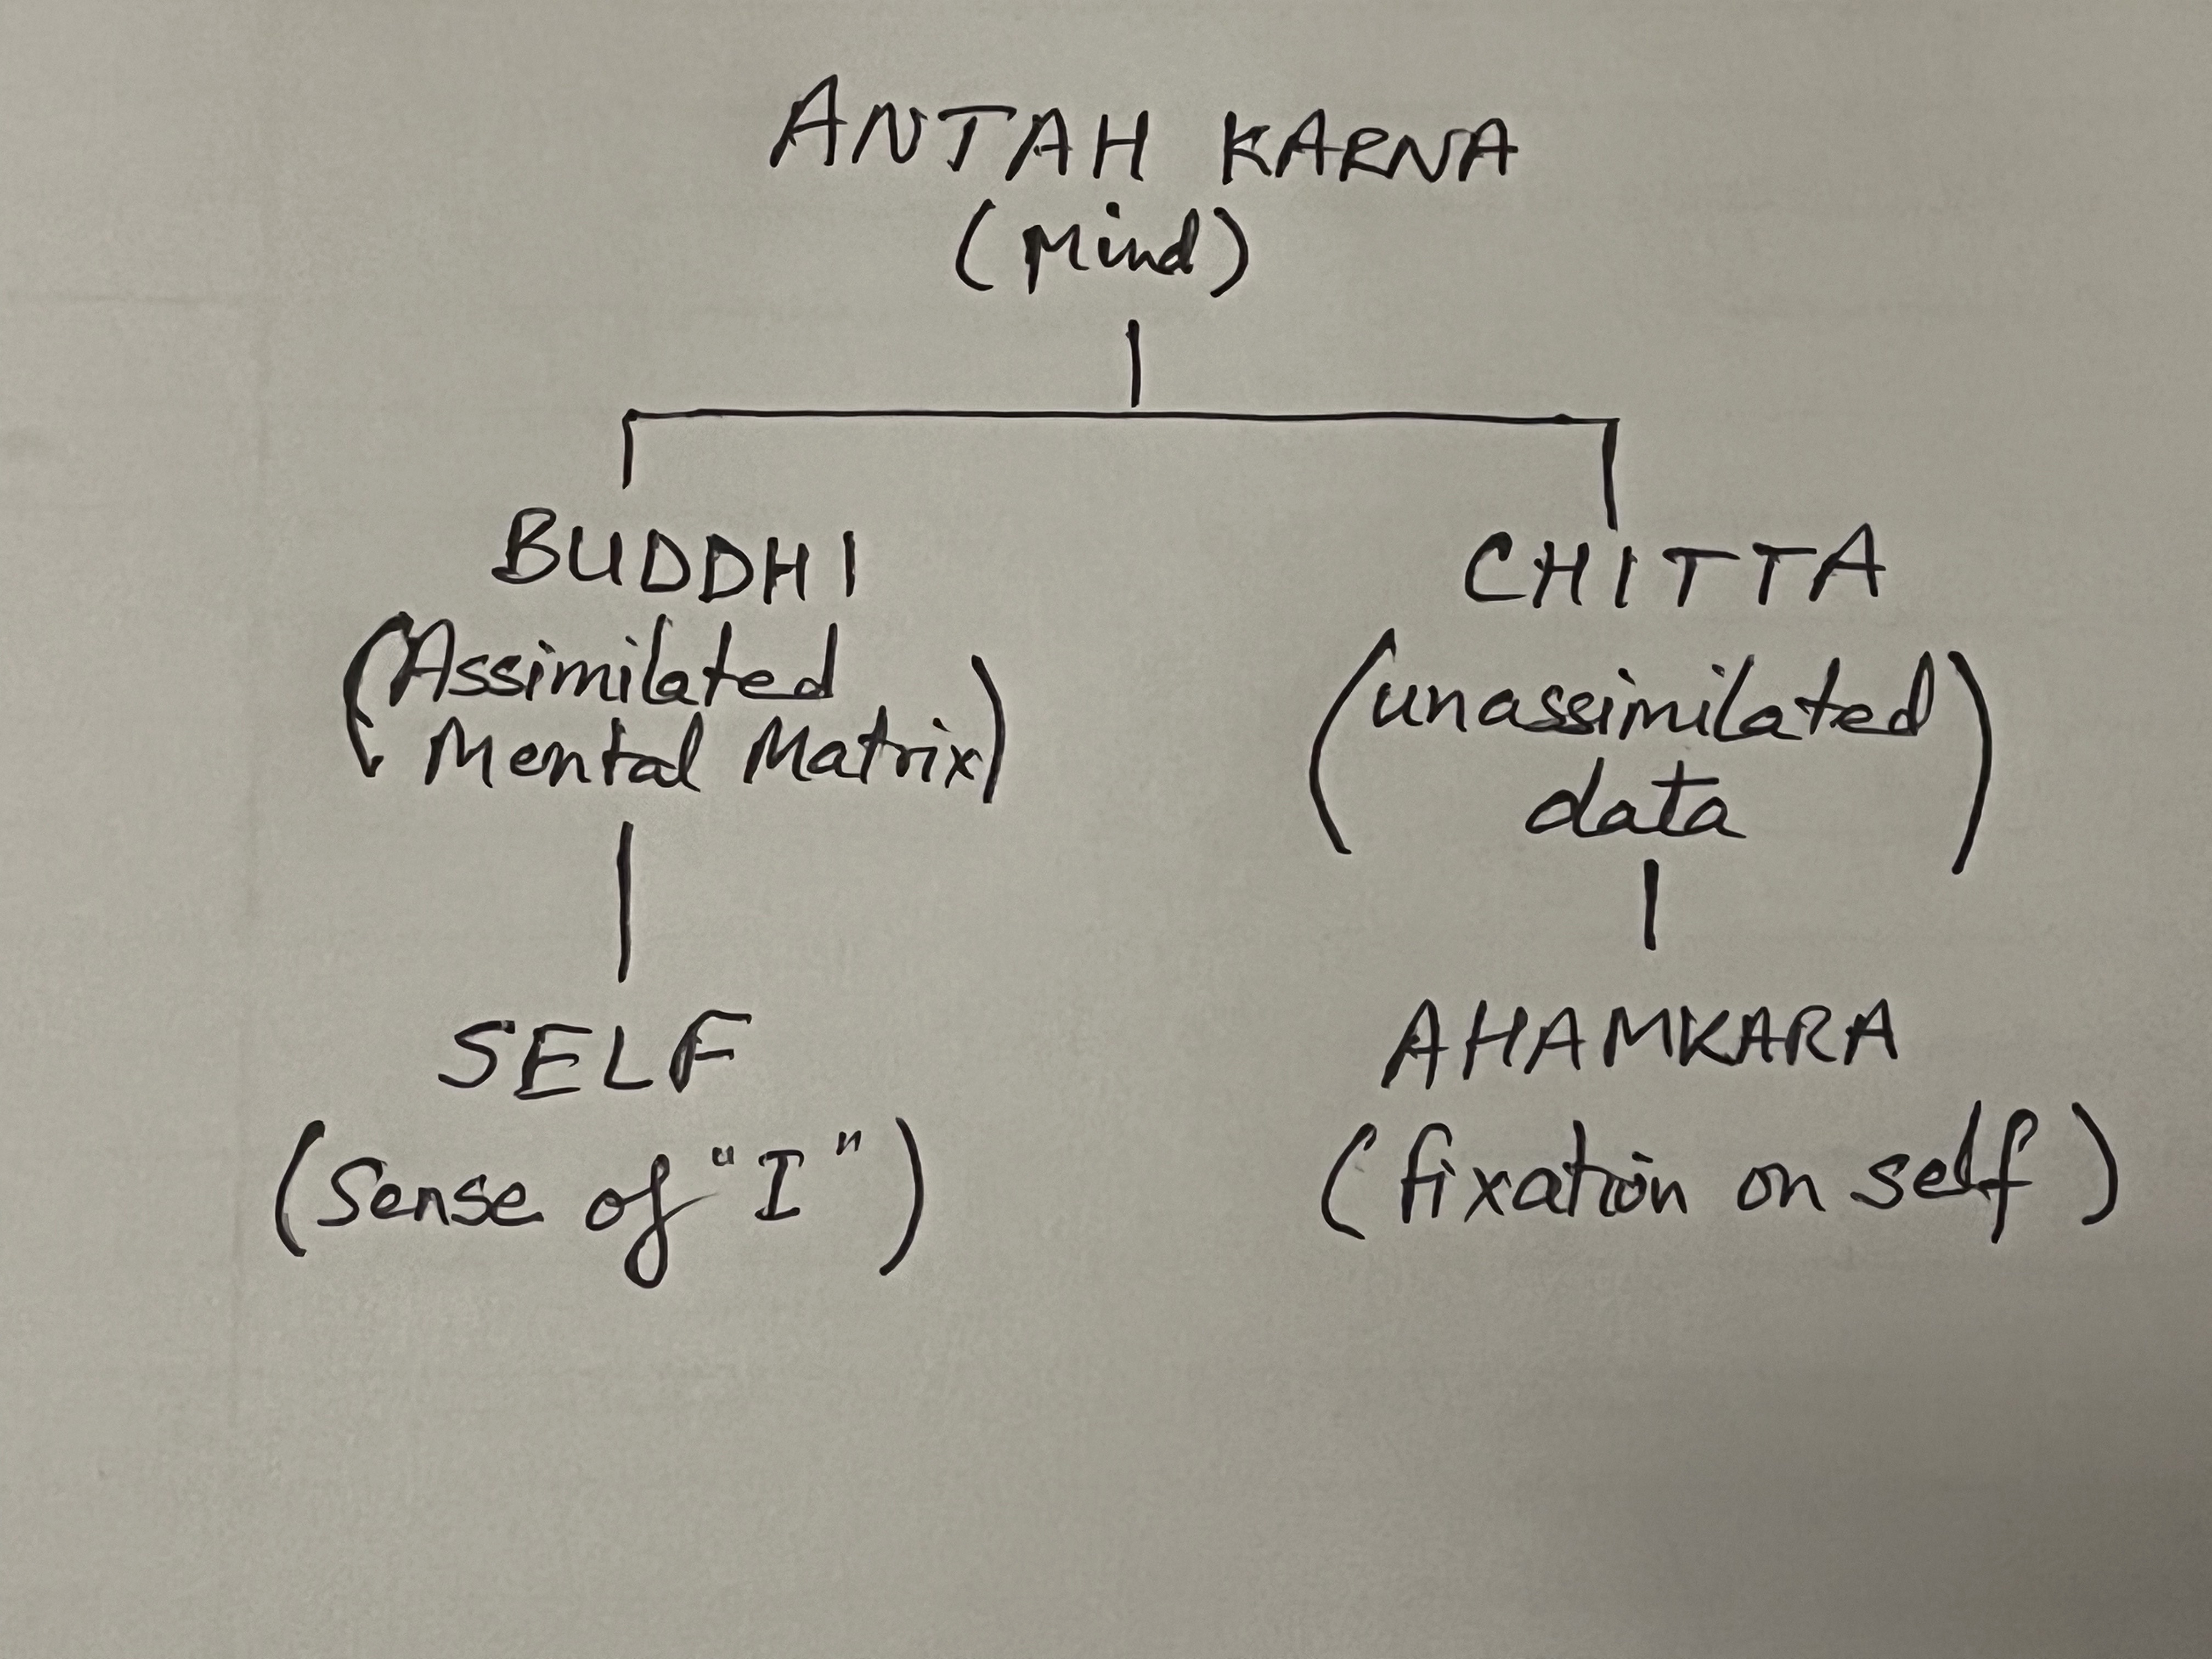 ANTAH KARNA
(Mind)
BUDDHI
(Assimilated
Mental Matrix)
CHITTA
(unassimilated
data)
SELF
(Sense of "I")
AHAMKARA
(fixation on self)